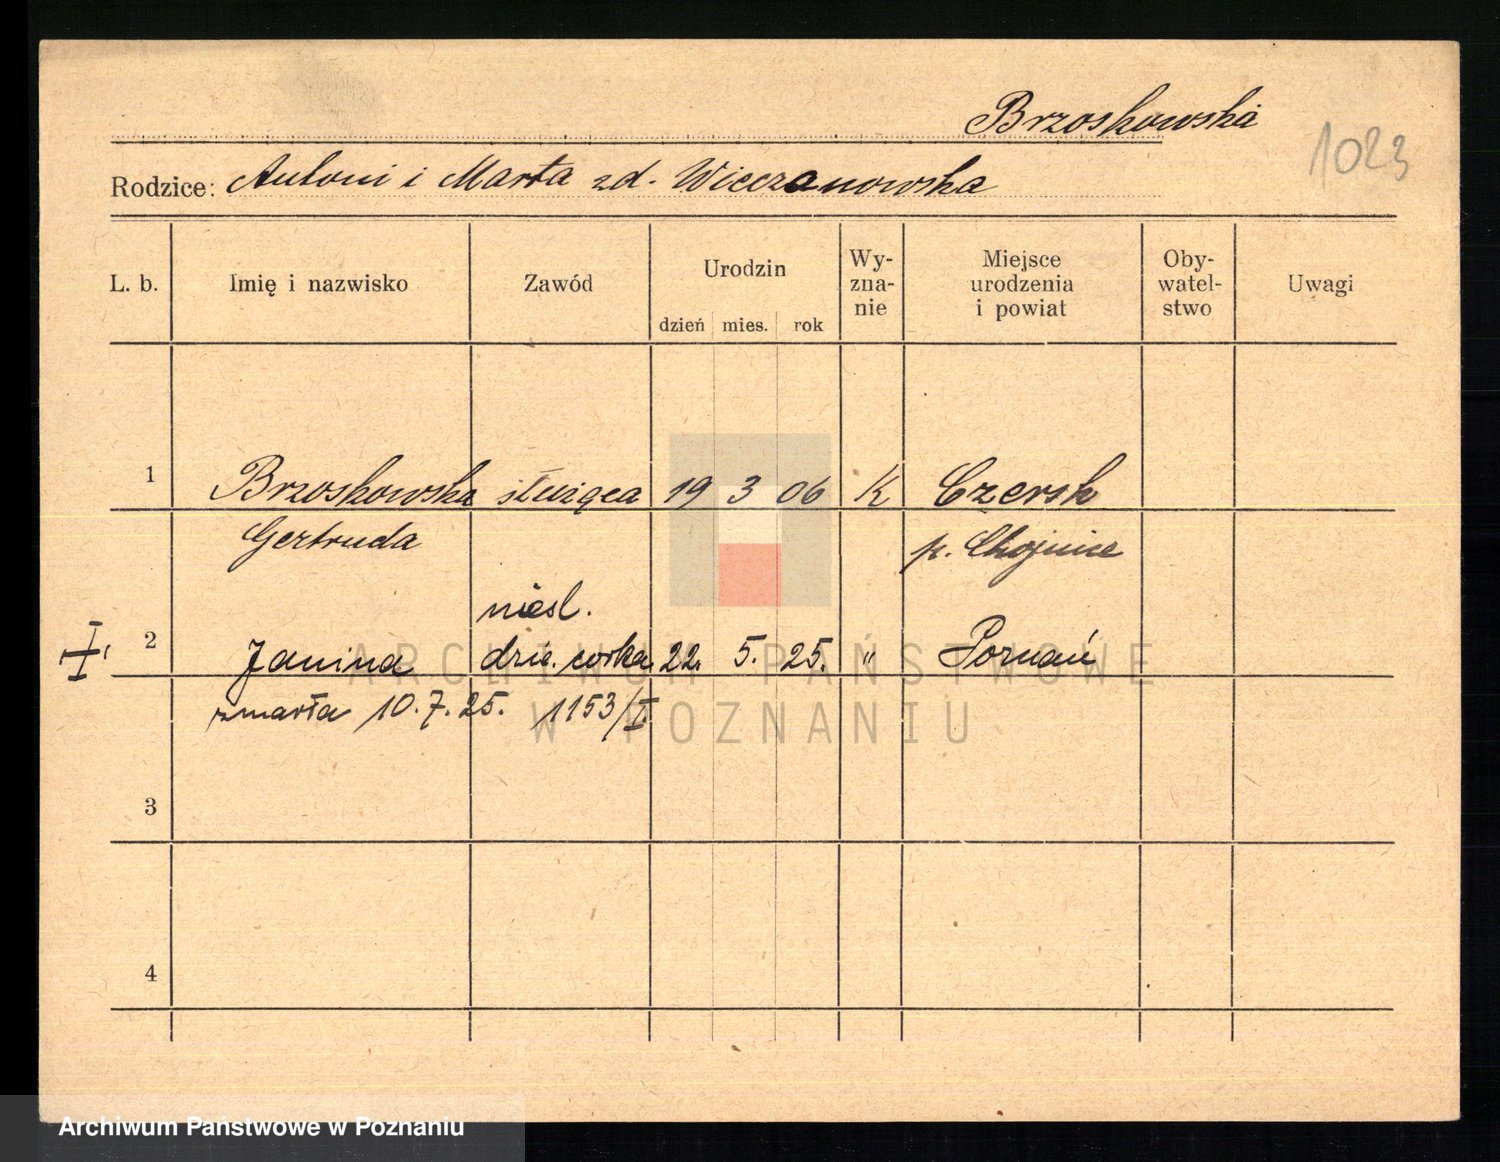 Brzoskowska
1023
Rodzice: Antoni i Marta zd. Wieczanowska
L. b. Imię i nazwisko Zawód Urodzin dzień mies. rok Wy-zna-nie Miejsce urodzenia i powiat Oby-watel-stwo Uwagi
1 Brzoskowska służąca 19 3 06 K Czersk
Gertruda p. Chojnice
niesl.
2 Janina córka 22. 5. 25. " Poznań
zmarła 10.7.25. 1153/I.
3
4
ARCHIWUM PAŃSTWOWE
W POZNANIU
Archiwum Państwowe w Poznaniu